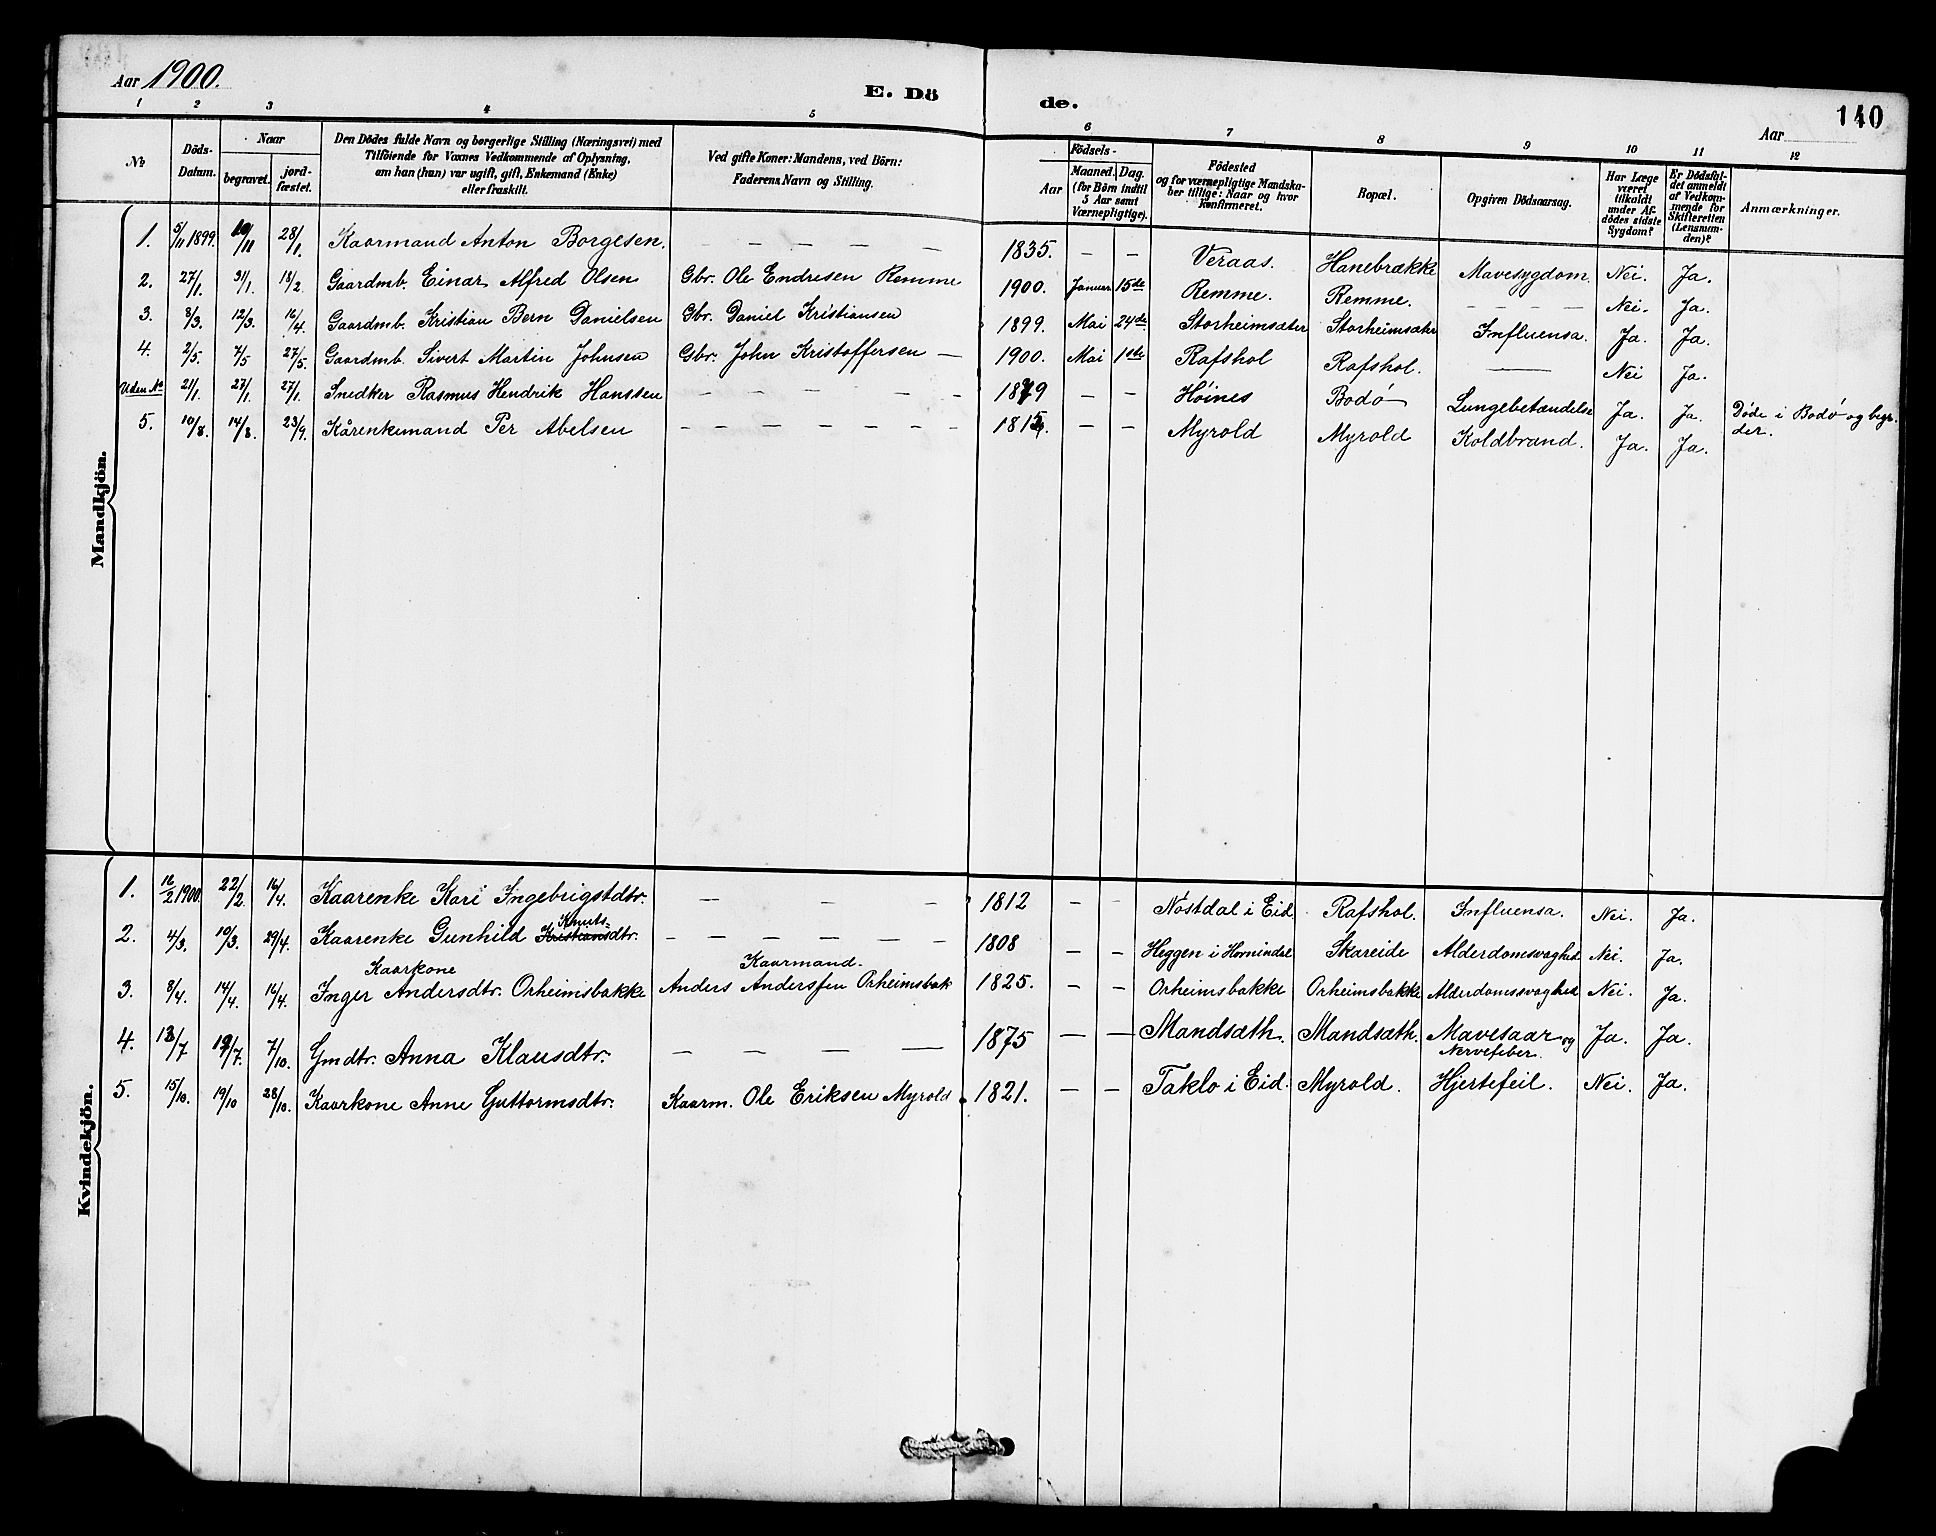 Aar 1900.
E. Dö
de.
140
Aar
1 2 3 4 5 6 7 8 9 10 11 12
No
Döds-Datum.
Naar
begravet.
jordfæstet.
Den Dödes fulde Navn og borgerlige Stilling (Næringsvei) med
Tilföiende for Voxnes Vedkommende af Oplysning,
om han (hun) var ugift, gift, Enkemand (Enke)
eller fraskilt.
Ved gifte Koner: Mandens, ved Börn:
Faderens Navn og Stilling.
Födsels-
Aar
Maaned. Dag.
(for Börn indtil
5 Aar samt
Værnepligtige).
Födested
og for værnepligtige Mandskaber tillige: Naar og hvor
konfirmeret.
Bopæl.
Opgiven Dödsaarsag.
Har Læge
været
tilkaldt
under Afdödes sidste
Sygdom?
Er Dödsfaldet anmeldt
af Vedkommende for
Skifteretten
(Lensmanden)?
Anmærkninger.
Mandkjön.
1. 5/11 1899. 10/11 28/1. Kaarmand Anton Borgesen. — — — — — 1835. — — Veraas. Hanebrække Mavesygdom. Nei. Ja.
2. 27/1. 31/1. 18/2. Gaardmb. Einar Alfred Olsen Gbr. Ole Endresen Remme 1900. Januar 15de Remme. Remme. — — — — Nei. Ja.
3. 8/3. 12/3. 16/4. Gaardmb. Kristian Bern Danielsen Gbr. Daniel Kristiansen 1899. Mai 24de Storheimsæter Storheimsæter Influensa. Ja. Ja.
4. 2/5. 7/5 27/5. Gaardmb. Sivert Martin Johnsen Gbr. John Kristoffersen — 1900. Mai 1ste Rafshol Rafshol. — Nei Ja.
Uden No 21/1. 27/1. 27/1. Snedker Rasmus Hendrik Hanssen — — — — — 1879 — — Höines Bodö Lungebetændelse Ja. Ja. Döde i Bodö og begr.
der.
5. 10/8. 14/8. 23/9. Kårenkemand Per Abelsen — — — — — — — 181 — — Myrold Myrold Koldbrand. Ja. Ja.
Kvindekjön.
1. 16/2 1900. 22/2. 16/4. Kaarenke Kari Ingebrigstdtr. — — — 1812 — — Nöstdal i Eid Rafshol. Influensa. Nei. Ja.
Knuts-
2. 4/3. 10/3. 29/4. Kaarenke Gunhild Kristiansdtr. — — — — — — 1808 — — Heggen i Hornindal Skareide Alderdomsvaghed Nei. Ja.
Kaarkone Kaarmand.
3. 8/4. 14/4. 16/4. Inger Andersdtr. Orheimsbakke Anders Andersen Orheimsbak 1825. — — Orheimsbakke Orheimsbakke Alderdomssvaghed Nei. Ja.
4. 13/7 19/7. 7/10. Gmdtr. Anna Klausdtr. — — — — 1875 — — Mandsæth. Mandsæth. Mavesaar og
Nervefeber. Ja. Ja.
5. 15/10. 19/10 28/10. Kaarkone Anne Guttormsdtr. Kaarm. Ole Eriksen Myrold 1821. — — Taklo i Eid. Myrold. Hjertefeil. Nei. Ja.